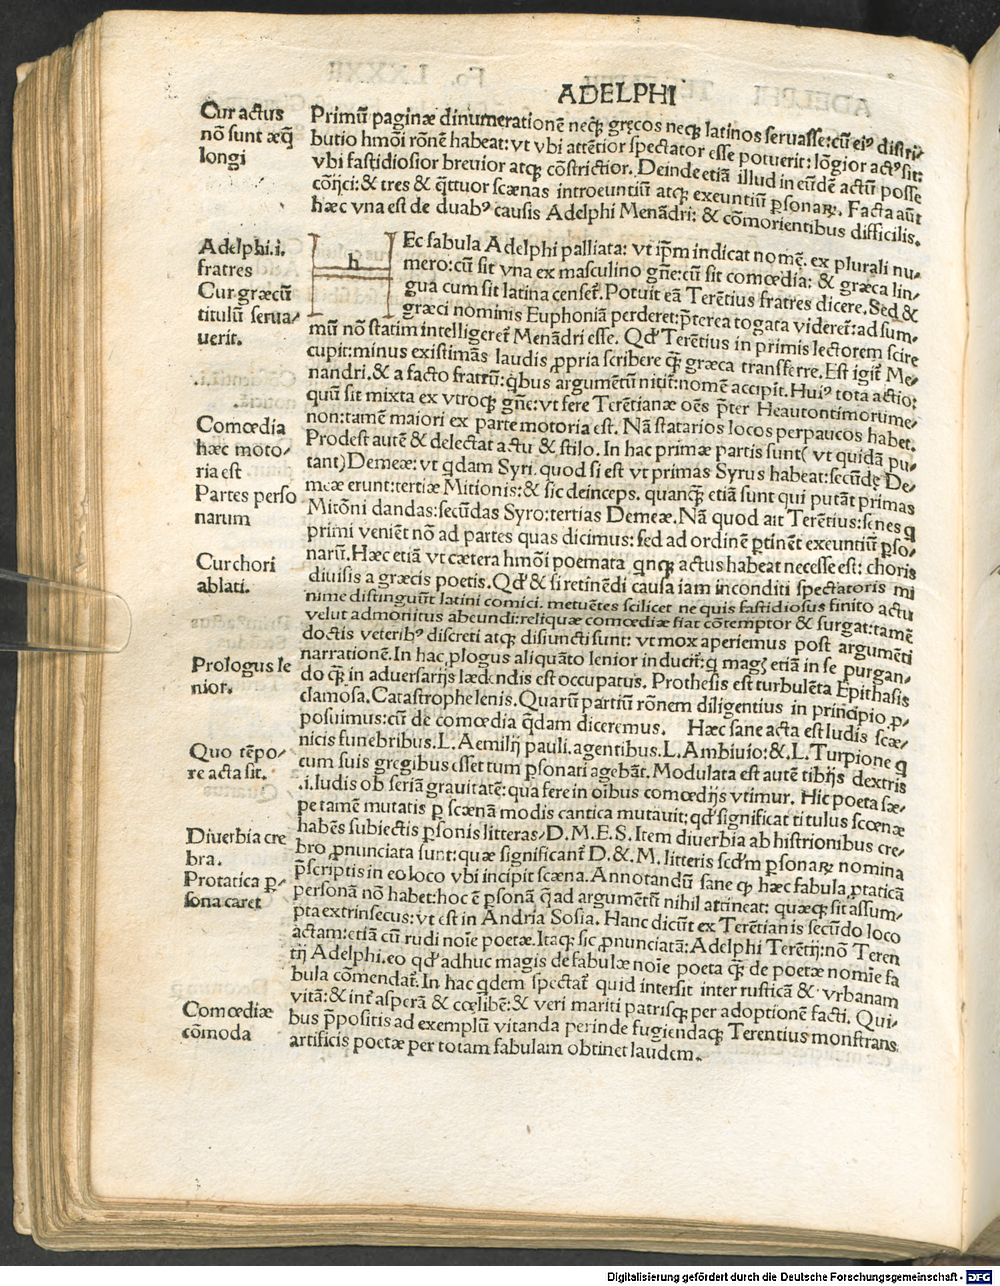 ADELPHI
Cur actus
nō sunt æq̃
longi
Primū paginæ dinumerationē neqꝫ gręcos neqꝫ latinos seruasse: cū eiꝰ distri/
butio hm̄oi rōnē habeat: vt vbi attētior spectator esse potuerit: lōgior actꝰ sit:
vbi fastidiosior breuior atqꝫ cōstrictior. Deinde etiā illud in eūdē actū posse
cōijci: & tres & q̄ttuor scænas introeuntiū atqꝫ exeuntiū ꝑsonaꝝ. Facta aūt
hæc vna est de duabꝰ causis Adelphi Menādri: & cōmorientibus difficilis.
Adelphi.i.
fratres
Cur græcū
titulū serua/
uerit.
h
Ec fabula Adelphi palliata: vt ip̄m indicat nomē. ex plurali nu/
mero: cū sit vna ex masculino gn̄e: cū sit comœdia: & græca lin/
gua cum sit latina censet᷑. Potuit eā Terētius fratres dicere. Sed &
græci nominis Euphoniā perderet: p̄terea togata videret᷑: ad sum/
mū nō statim intelligeret᷑ Menādri esse. Qd̕ Terētius in primis lectorem scire
cupit: minus existimās laudis ꝓpria scribere q̄ꝫ græca transferre. Est igit᷑ Me/
nandri. & a facto fratrū: q̇bus argumētū nitit᷑: nomē accipit. Huiꝰ tota actio:
quū sit mixta ex vtroqꝫ gn̄e: vt fere Terētianæ oēs p̄ter Heautontimorume/
non: tamē maiori ex parte motoria est. Nā statarios locos perpaucos habet.
Comœdia
hæc moto/
ria est
Partes perso
narum
Prodest autē & delectat actu & stilo. In hac primæ partis sunt( vt quidā pu/
tant) Demeæ: vt q̇dam Syri. quod si est vt primas Syrus habeat: secūdę De/
meæ erunt: tertiæ Mitionis: & sic deinceps. quanq̄ꝫ etiā sunt qui putāt primas
Mitōni dandas: secūdas Syro: tertias Demeæ. Nā quod ait Terētius: senes q̇
primi veniēt nō ad partes quas dicimus: sed ad ordinē ꝑtinēt exeuntiū ꝑso/
Cur chori
ablati.
narū. Hæc etiā vt cætera hm̄oi poemata q̇nqꝫ actus habeat necesse est: choris
diuisis a græcis poetis. Qd̕ & si retinēdi causa iam inconditi spectatoris mi
nime distinguūt latini comici. metuētes scilicet ne quis fastidiosus finito actu
velut admonitus abeundi: reliquæ comœdiæ fiat cōtemptor & surgat: tamē
doctis veteribꝰ discreti atqꝫ disiuncti sunt: vt mox aperiemus post argumēti
Prologus le
nior.
narrationē. In hac ꝓlogus aliquāto lenior inducit᷑: q̇ magꝭ etiā in se purgan/
do q̄ꝫ in aduersarijs lædendis est occupatus. Prothesis est turbulēta Epithasis
clamosa. Catastrophe lenis. Quarū partiū rōnem diligentius in principio ꝓ/
posuimus: cū de comœdia q̇dam diceremus. Hæc sane acta est ludis scæ/
Quo tēpo/
re acta sit.
nicis funebribus. L. Aemilij pauli. agentibus. L. Ambiuio: &. L. Turpione q̇
cum suis gregibus esset tum ꝑsonati agebāt. Modulata est autē tibijs dextris
.i. ludis ob seriā grauitatē: qua fere in oībus comœdijs vtimur. Hic poeta sæ/
pe tamē mutatis ꝑ scænā modis cantica mutauit: qd̕ significat titulus scœnæ
habēs subiectis ꝑsonis litteras/D.M.E.S. Item diuerbia ab histrionibus cre/
Diuerbia cre
bra.
Protatica ꝑ/
sona caret
bro ꝓnunciata sunt: quæ significant᷑ D. & .M. litteris scd̕m ꝑsonaꝝ nomina
p̄scriptis in eo loco vbi incipit scæna. Annotandū sane qꝫ hæc fabula ꝓtaticā
personā nō habet: hoc ē ꝑsonā q̄ ad argumētū nihil attineat: quæqꝫ sit assum/
pta extrinsecus: vt est in Andria Sosia. Hanc dicūt ex Terētianis secūdo loco
actam: etiā cū rudi noīe poetæ. Itaqꝫ sic ꝓnunciatā: Adelphi Terētij: nō Teren
tij Adelphi. eo qd̕ adhuc magis de fabulæ noīe poeta q̄ꝫ de poetæ nomīe fa
bula cōmendat᷑. In hac q̇dem spectat᷑ quid intersit inter rusticā & vrbanam
Comœdiæ
cōmoda
vitā: & int᷑ asperā & cœlibē: & veri mariti patrisqꝫ per adoptionē facti. Qui/
bus p̄positis ad exemplū vitanda perinde fugiendaqꝫ Terentius monstrans
artificis poetæ per totam fabulam obtinet laudem.
Digitalisierung gefördert durch die Deutsche Forschungsgemeinschaft - DFG